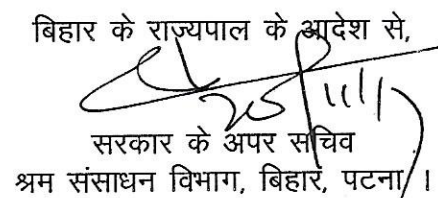 बिहार के राज्यपाल के आदेश से,
सरकार के अपर सचिव
श्रम संसाधन विभाग, बिहार, पटना।